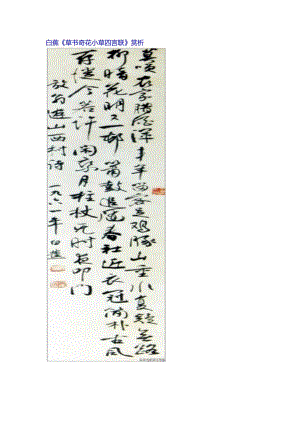 白蕉《草书奇花小草四言联》赏析
莫笑农家腊酒浑丰年留客足鸡豚山重水复疑无路
柳暗花明又一村箫鼓追随春社近衣冠简朴古风
存从今若许闲乘月拄杖无时夜叩门
放翁遊山西村诗 一九六一年 白蕉